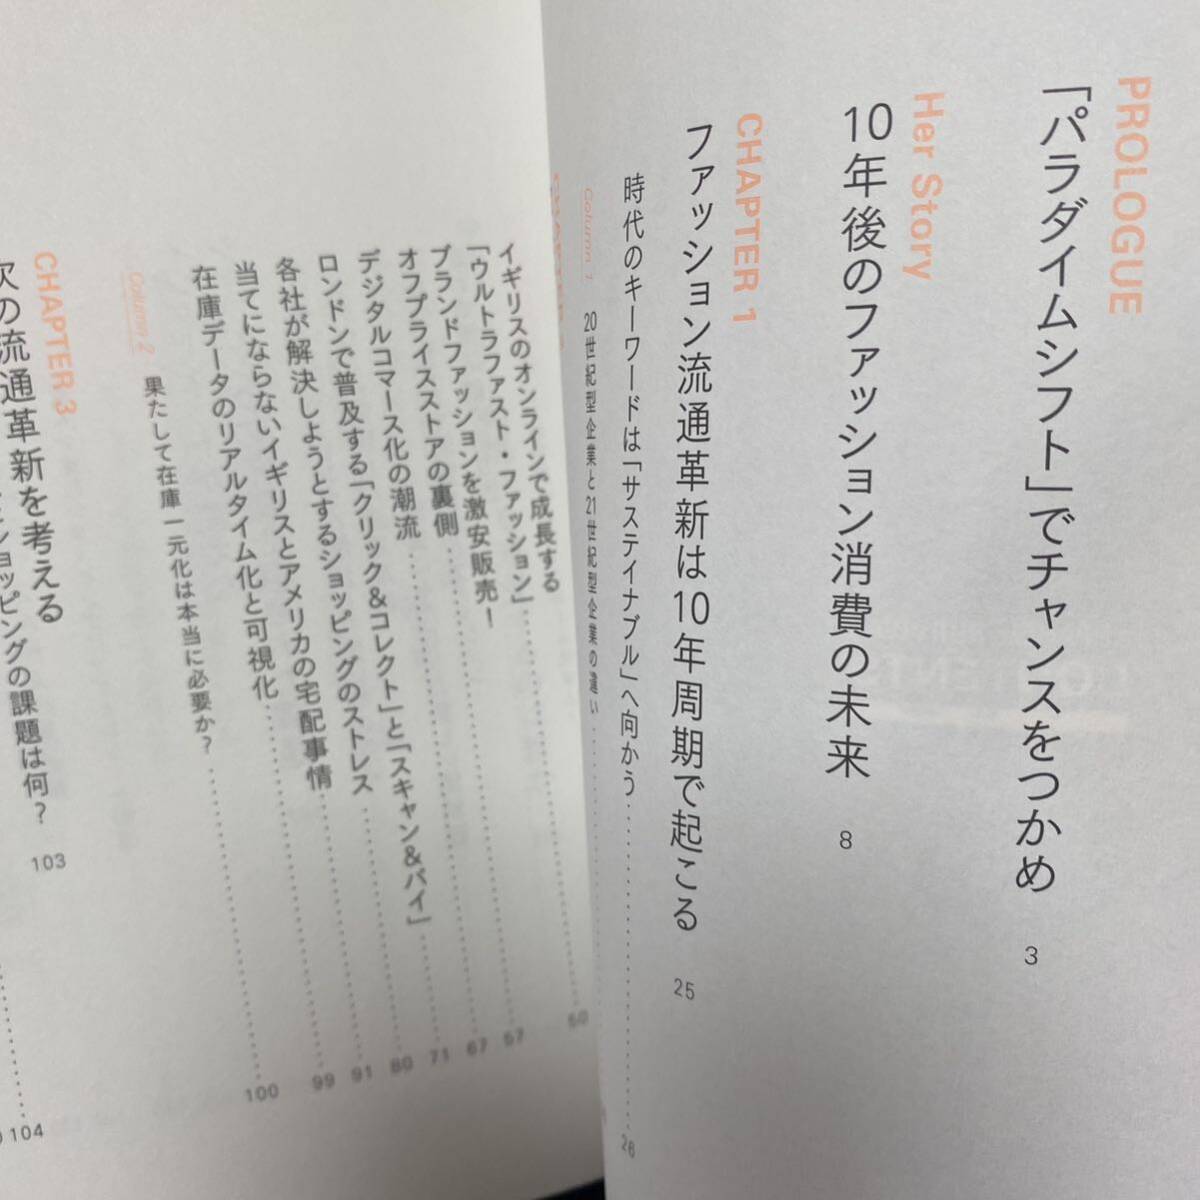 PROLOGUE
「パラダイムシフト」でチャンスをつかめ 3
Her Story
10年後のファッション消費の未来 8
CHAPTER 1
ファッション流通革新は10年周期で起こる 25
時代のキーワードは「サステイナブル」へ向かう 26
Column 1 20世紀型企業と21世紀型企業の違い
イギリスのオンラインで成長する
「ウルトラファスト・ファッション」
ブランドファッションを激安販売!
オフプライスストアの裏側
デジタルコマース化の潮流
ロンドンで普及する「クリック&コレクト」と「スキャン&バイ」
各社が解決しようとするショッピングのストレス
当てにならないイギリスとアメリカの宅配事情
在庫データのリアルタイム化と可視化
Column 2 果たして在庫一元化は本当に必要か?
57
67
71
80
91
99
100
CHAPTER 3
次の流通革新を考える
ショッピングの課題は何? 103
104